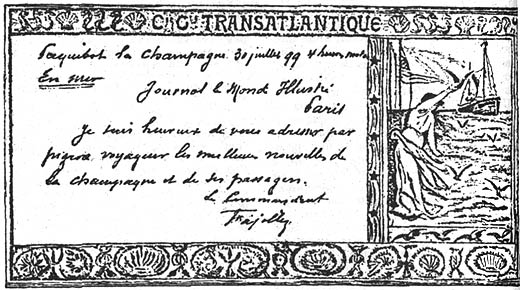 Cie Gle TRANSATLANTIQUE
Paquebot la Champagne 30 juillet 99 4 heures
En mer
Journal le Monde Illustré
Paris
Je suis heureux de vous adresser par
pigeon voyageur les meilleures nouvelles de
la Champagne et de ses passagers.
Le Commandant